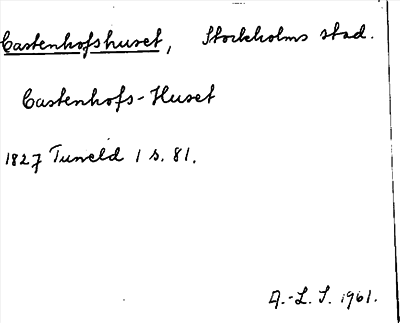 Castenhofshuset, Stockholms stad.
Castenhofs-Huset
1827 Tuneld 1 s. 81.
A.-L. S. 1961.